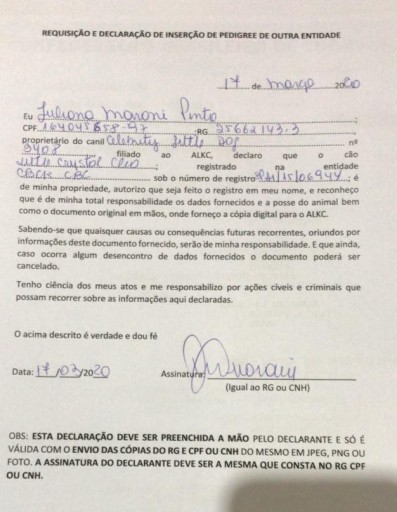 REQUISIÇÃO E DECLARAÇÃO DE INSERÇÃO DE PEDIGREE DE OUTRA ENTIDADE
17 de março 2020
Eu Juliana Marani Pinto
CPF RG 25662143.3
proprietário do canil Celebrity Little Dog nº
2408 filiado ao ALKC, declaro que o cão
Little Crystal registrado na entidade
CBC sob o número de registro é
de minha propriedade, autorizo que seja feito o registro em meu nome, e reconheço
que é de minha total responsabilidade os dados fornecidos e a posse do animal bem
como o documento original em mãos, onde forneço a cópia digital para o ALKC.
Sabendo-se que quaisquer causas ou consequências futuras recorrentes, oriundos por
informações deste documento fornecido, serão de minha responsabilidade. E que ainda,
caso ocorra algum desencontro de dados fornecidos o documento poderá ser
cancelado.
Tenho ciência dos meus atos e me responsabilizo por ações cíveis e criminais que
possam recorrer sobre as informações aqui declaradas.
O acima descrito é verdade e dou fé
Data: 17/03/2020 Assinatura:
(Igual ao RG ou CNH)
OBS: ESTA DECLARAÇÃO DEVE SER PREENCHIDA A MÃO PELO DECLARANTE E SÓ É
VÁLIDA COM O ENVIO DAS CÓPIAS DO RG E CPF OU CNH DO MESMO EM JPEG, PNG OU
FOTO. A ASSINATURA DO DECLARANTE DEVE SER A MESMA QUE CONSTA NO RG CPF
OU CNH.